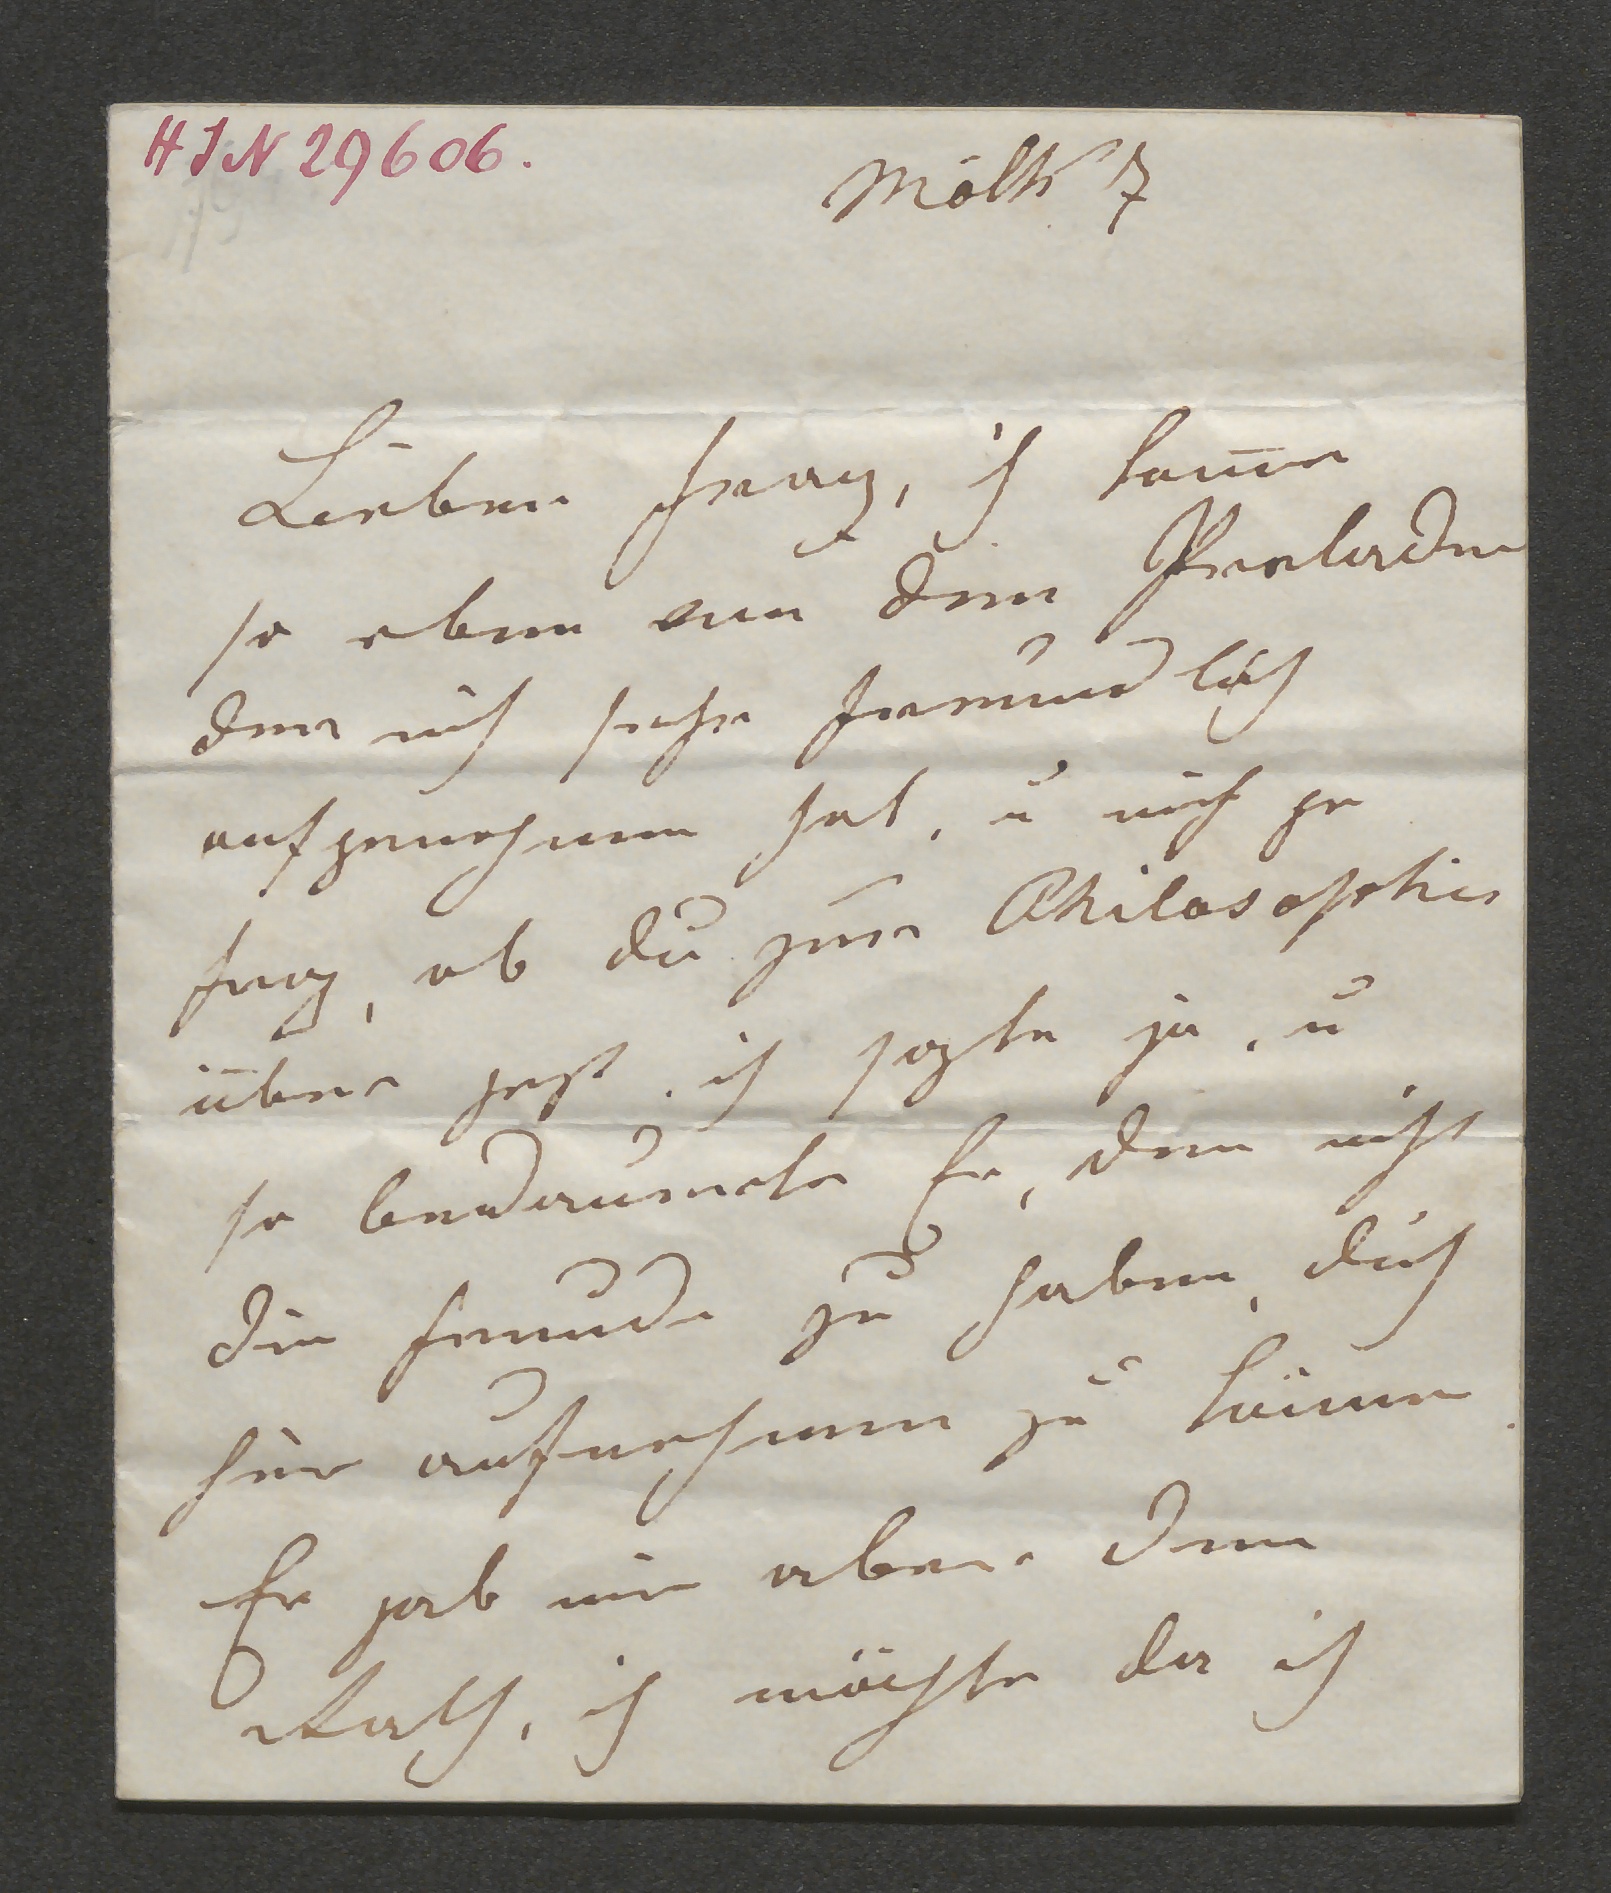 HIN 29606.
Mölk 7
Lieber Franz, ich kom̄e
so eben von dem Prelaten
der mich sehr freundlich
aufgenohmen hat, u mich ge
frag, ob du zur Philosophie
über gest. ich sagte ja, u
so bedauerte Er, den nicht
die freude zu haben, dich
hier aufnehmen zu könen
Er gab mir aber den
Rath, ich möchte da ich